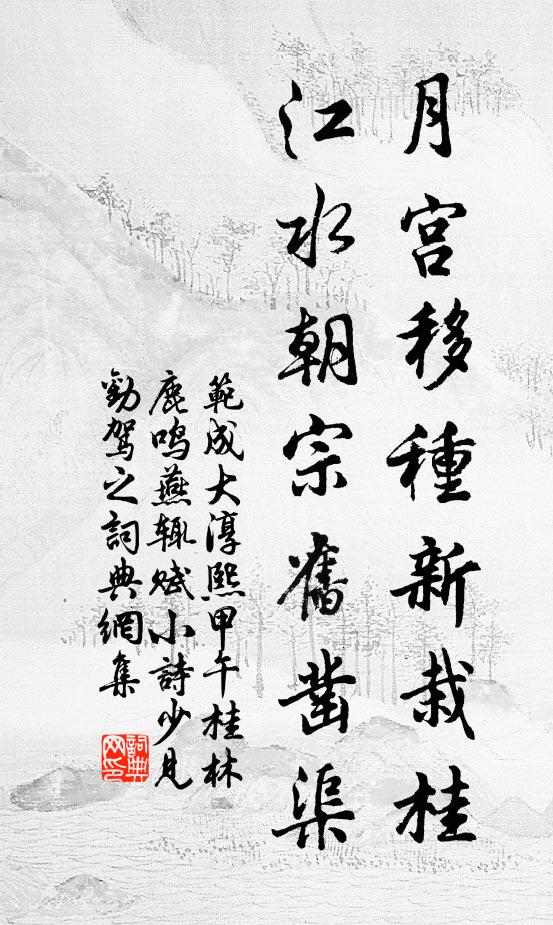 月宫移種新栽桂
江水朝宗舊鑿渠
範成大淳熙甲午桂林
鹿鳴燕輒賦小詩少見
勸駕之詞典網集
詞典
网印